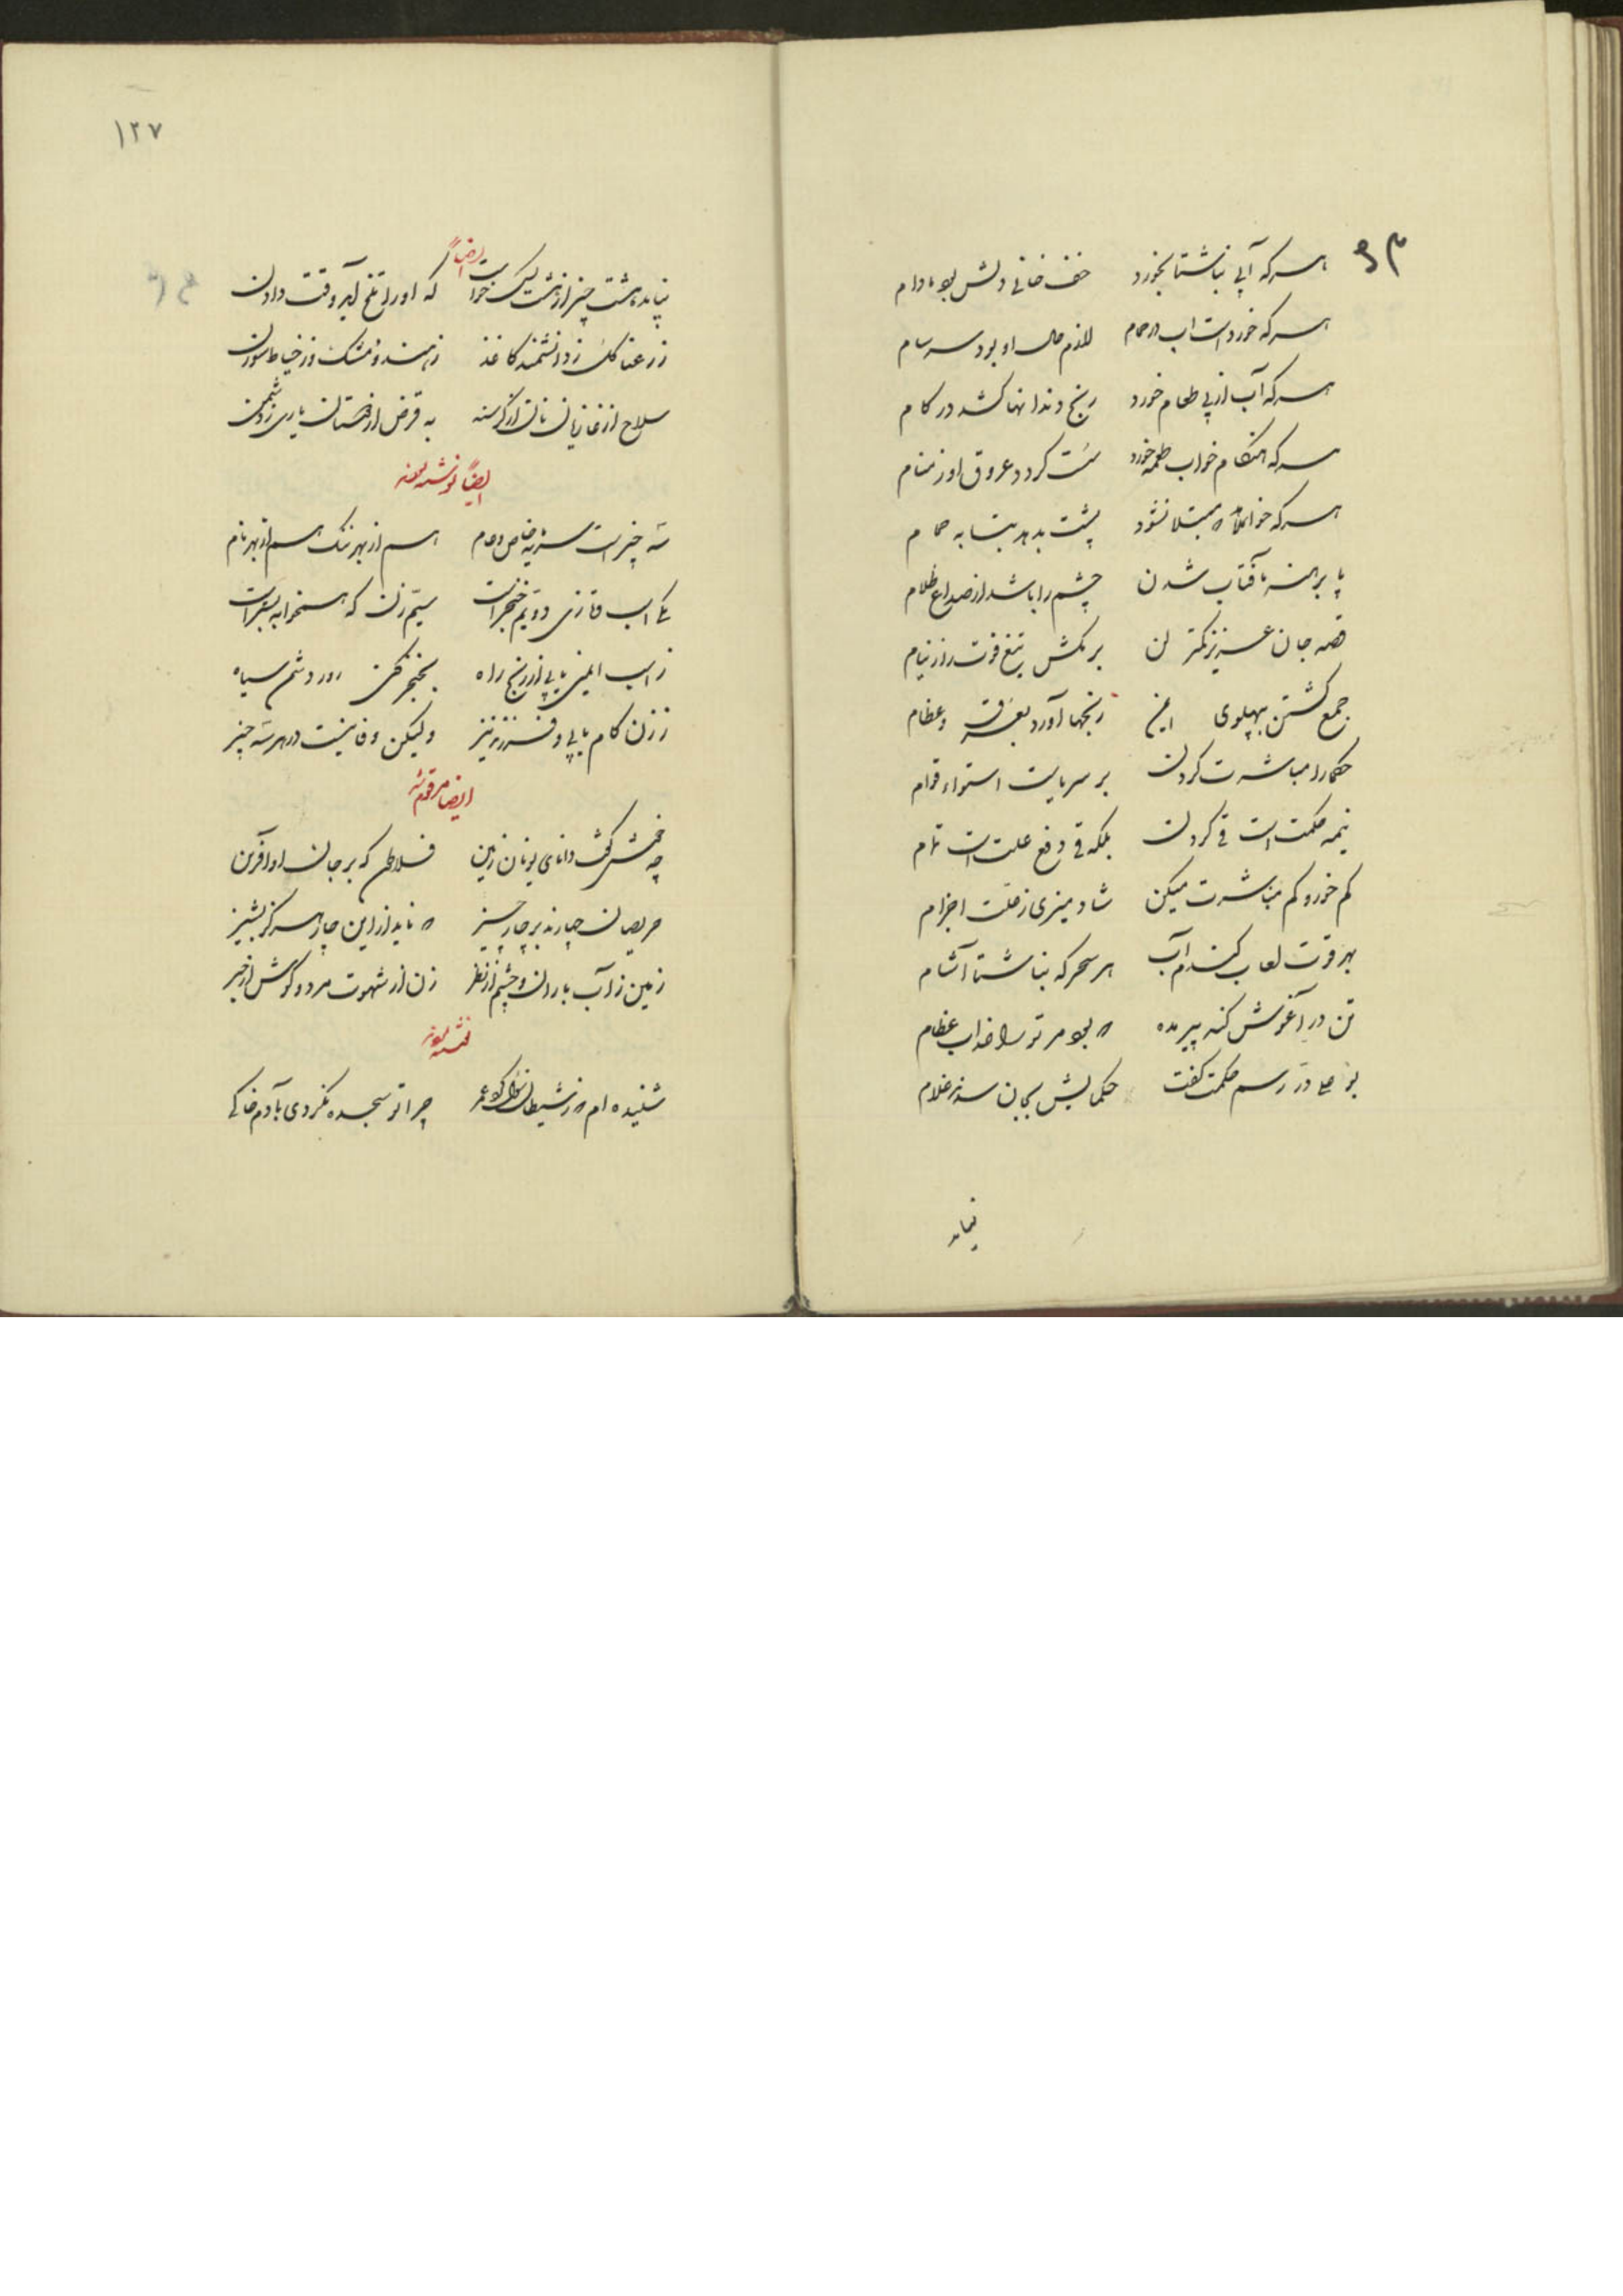 هر که آبی بناشتا بخورد خفت خانی دلش بود مادام
هر که خورد است آب در حمام لازم حال او بود سرسام
هر که آب از پی طعام خورد رنج دندانها کشد در کام
هر که هنگام خواب طعمه خورد سست گردد عروق او ز منام
هر که خواهد که مبتلا نشود پشت بدهد بتابه حمام
پا برهنه بآفتاب شدن چشم را باشد از صداع ظلام
قصد جان عزیز کمتر کن برمکش تیغ قوت را ز نیام
جمع گشتن بپهلوی این رنجها آورد بفرق و عظام
حکما را مباشرت کردن بر سرپایست استواء قوام
نیمه حکمت است قی کردن بلکه قی دفع علت است تمام
کم خور و کم مباشرت میکن شاد میزی ز علت اجزام
بهر قوت لعاب گندم آب هر سحرگه بناشتا آشام
تن در آغوش گنده پیر مده که بود مر ترا عذاب عظام
بوعلی در رسم حکمت گفت حکمایش بجان سزد غلام
نیاید
۱۲۷
ایضاً
نیاید هشت چیز از هشت کس خواست که او را تلخ آید وقت دادن
ز رعنا گل ز دانشمند کاغذ ز هندو مشک وز خیاط سوزن
سلاح از غازیان نان از گرسنه به قرض از دوستان یاری ز دشمن
ایضاً نوشته شد
سه چیز است سرمایه خاص و عام هم از بهر ننگ هم از بهر نام
یکی اسب تازی دویم خنجر است سیم زن که همخوابه بستر است
ز اسب ایمنی یابی از رنج راه بخنجر کنی روز دشمن سیاه
ز زن کام یابی و فرزند نیز ولیکن وفا نیست در هر سه چیز
ایضا مرقوم شد
چه خوش گفت دانای یونان زمین فلاطن که بر جان او آفرین
حریصان چهارند بر چار چیز که ناید از این چار هرگز بشیز
زمین ز آب باران و چشم از نظر زن از شهوت مرد و گوش از خبر
شنیده ام که ز شیطان سؤال کرد عمر چرا تو سجده نکردی بآدم خاکی